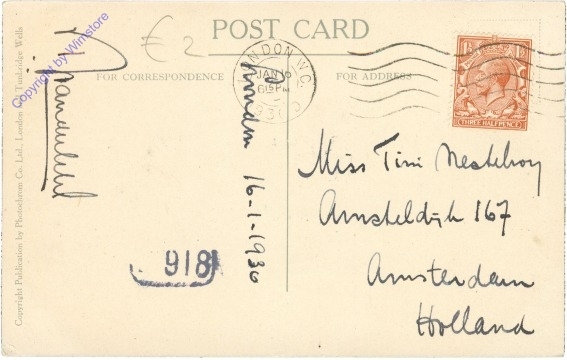 € 2
POST CARD
FOR CORRESPONDENCE
FOR ADDRESS
Copyright Publication by Photochrom Co. Ltd., London and Tunbridge Wells
Copyright by Wimstore
LONDON. W.C.
JAN 16
6 15 PM
1930
THREE HALFPENCE
London 16-1-1930
918
Miss Tini
Amsteldijk 167
Amsterdam
Holland